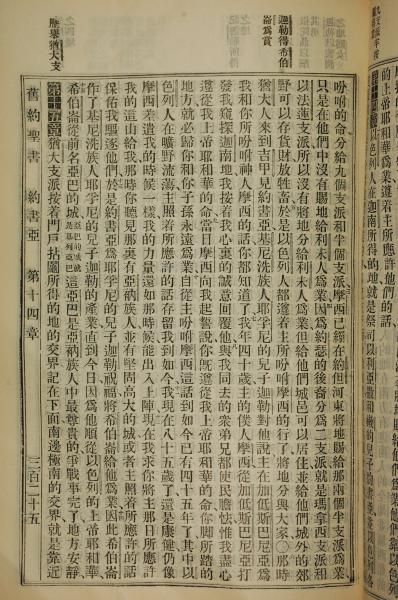 的上帝耶和華爲業遵着主所應許他們的話
以色列人在迦南所得的地就是祭司以利亞撒和嫩的兒子約書亞並以色列各
吩咐的命分給九個支派和半個支派摩西已經在約但河東將地賜給那兩個半支派爲業
只是在他們中沒有賜地給利未人爲業因爲約瑟的後裔分爲二支派就是瑪拿西支派和
以法蓮支派所以沒有將地分給利未人爲業但給他們城邑可以居住並給他們城外的郊
野可以存貨財放牲畜於是以色列人都遵着主所吩咐摩西的行了將地分與大家○那時
猶大人來到吉甲見約書亞基尼洗族人耶孚尼的兒子迦勒對他說主在加低斯巴尼亞爲
我和你所吩咐神人摩西的話你都知道了我年四十歲主的僕人摩西從加低斯巴尼亞打
發我窺探迦南地我按着我心裏的誠意回覆他與我同去的衆弟兄都使民膽怯惟我盡心
遵從我上帝耶和華的命當日摩西向我起誓說你旣遵從我上帝耶和華的命你脚所踏的
地方就必歸你和你子孫永遠爲業自從主吩咐摩西這話到如今已有四十五年了其中以
色列人在曠野流蕩主照着所應許的話存留我到如今我現在八十五歲了還是康健仍像
摩西差遣我的時候一樣我的力量還如那時候能出入上陣現在我求你將主那日所應許
我的這山給我那時你聽見那裏有亞衲族人並有堅固高大的城或者主照着所應許的話
保佑我驅逐他們於是約書亞爲耶孚尼的兒子迦勒祝福將希伯崙給他爲業因此希伯崙
作了基尼洗族人耶孚尼的兒子迦勒的產業直到今日因爲他順從以色列的上帝耶和華
希伯崙從前名亞巴的城亞巴的城就是基列亞巴這亞巴是亞衲族人中最尊貴的爭戰事完了地方安靜
第十五章猶大支派按着門戶拈鬮所得的地的交界記在下面南邊極南的交界就是靠近
迦勒得希伯
崙爲賞
歷舉猶大支
舊約聖書 約書亞 第十四章 三百二十五